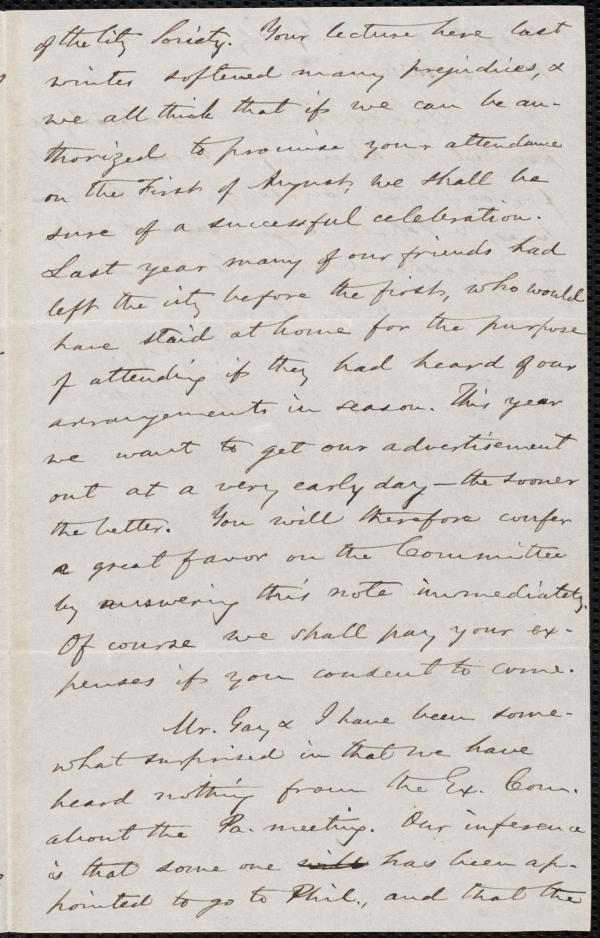 of the City Society. Your lecture here last
winter softened many prejudices, &
we all think that if we can be au-
thorized to promise your attendance
on the First of August, we shall be
sure of a successful celebration.
Last year many of our friends had
left the city before the first, who would
have staid at home for the purpose
of attending if they had heard of our
arrangements in season. This year
we want to get our advertisement
out at a very early day — the sooner
the better. You will therefore confer
a great favor on the Committee
by answering this note immediately.
Of course we shall pay your ex-
penses if you consent to come.
Mr. Gay & I have been some-
what surprised in that we have
heard nothing from the Ex. Com.
about the Pa. meeting. Our inference
is that some one will has been ap-
pointed to go to Phil., and that the